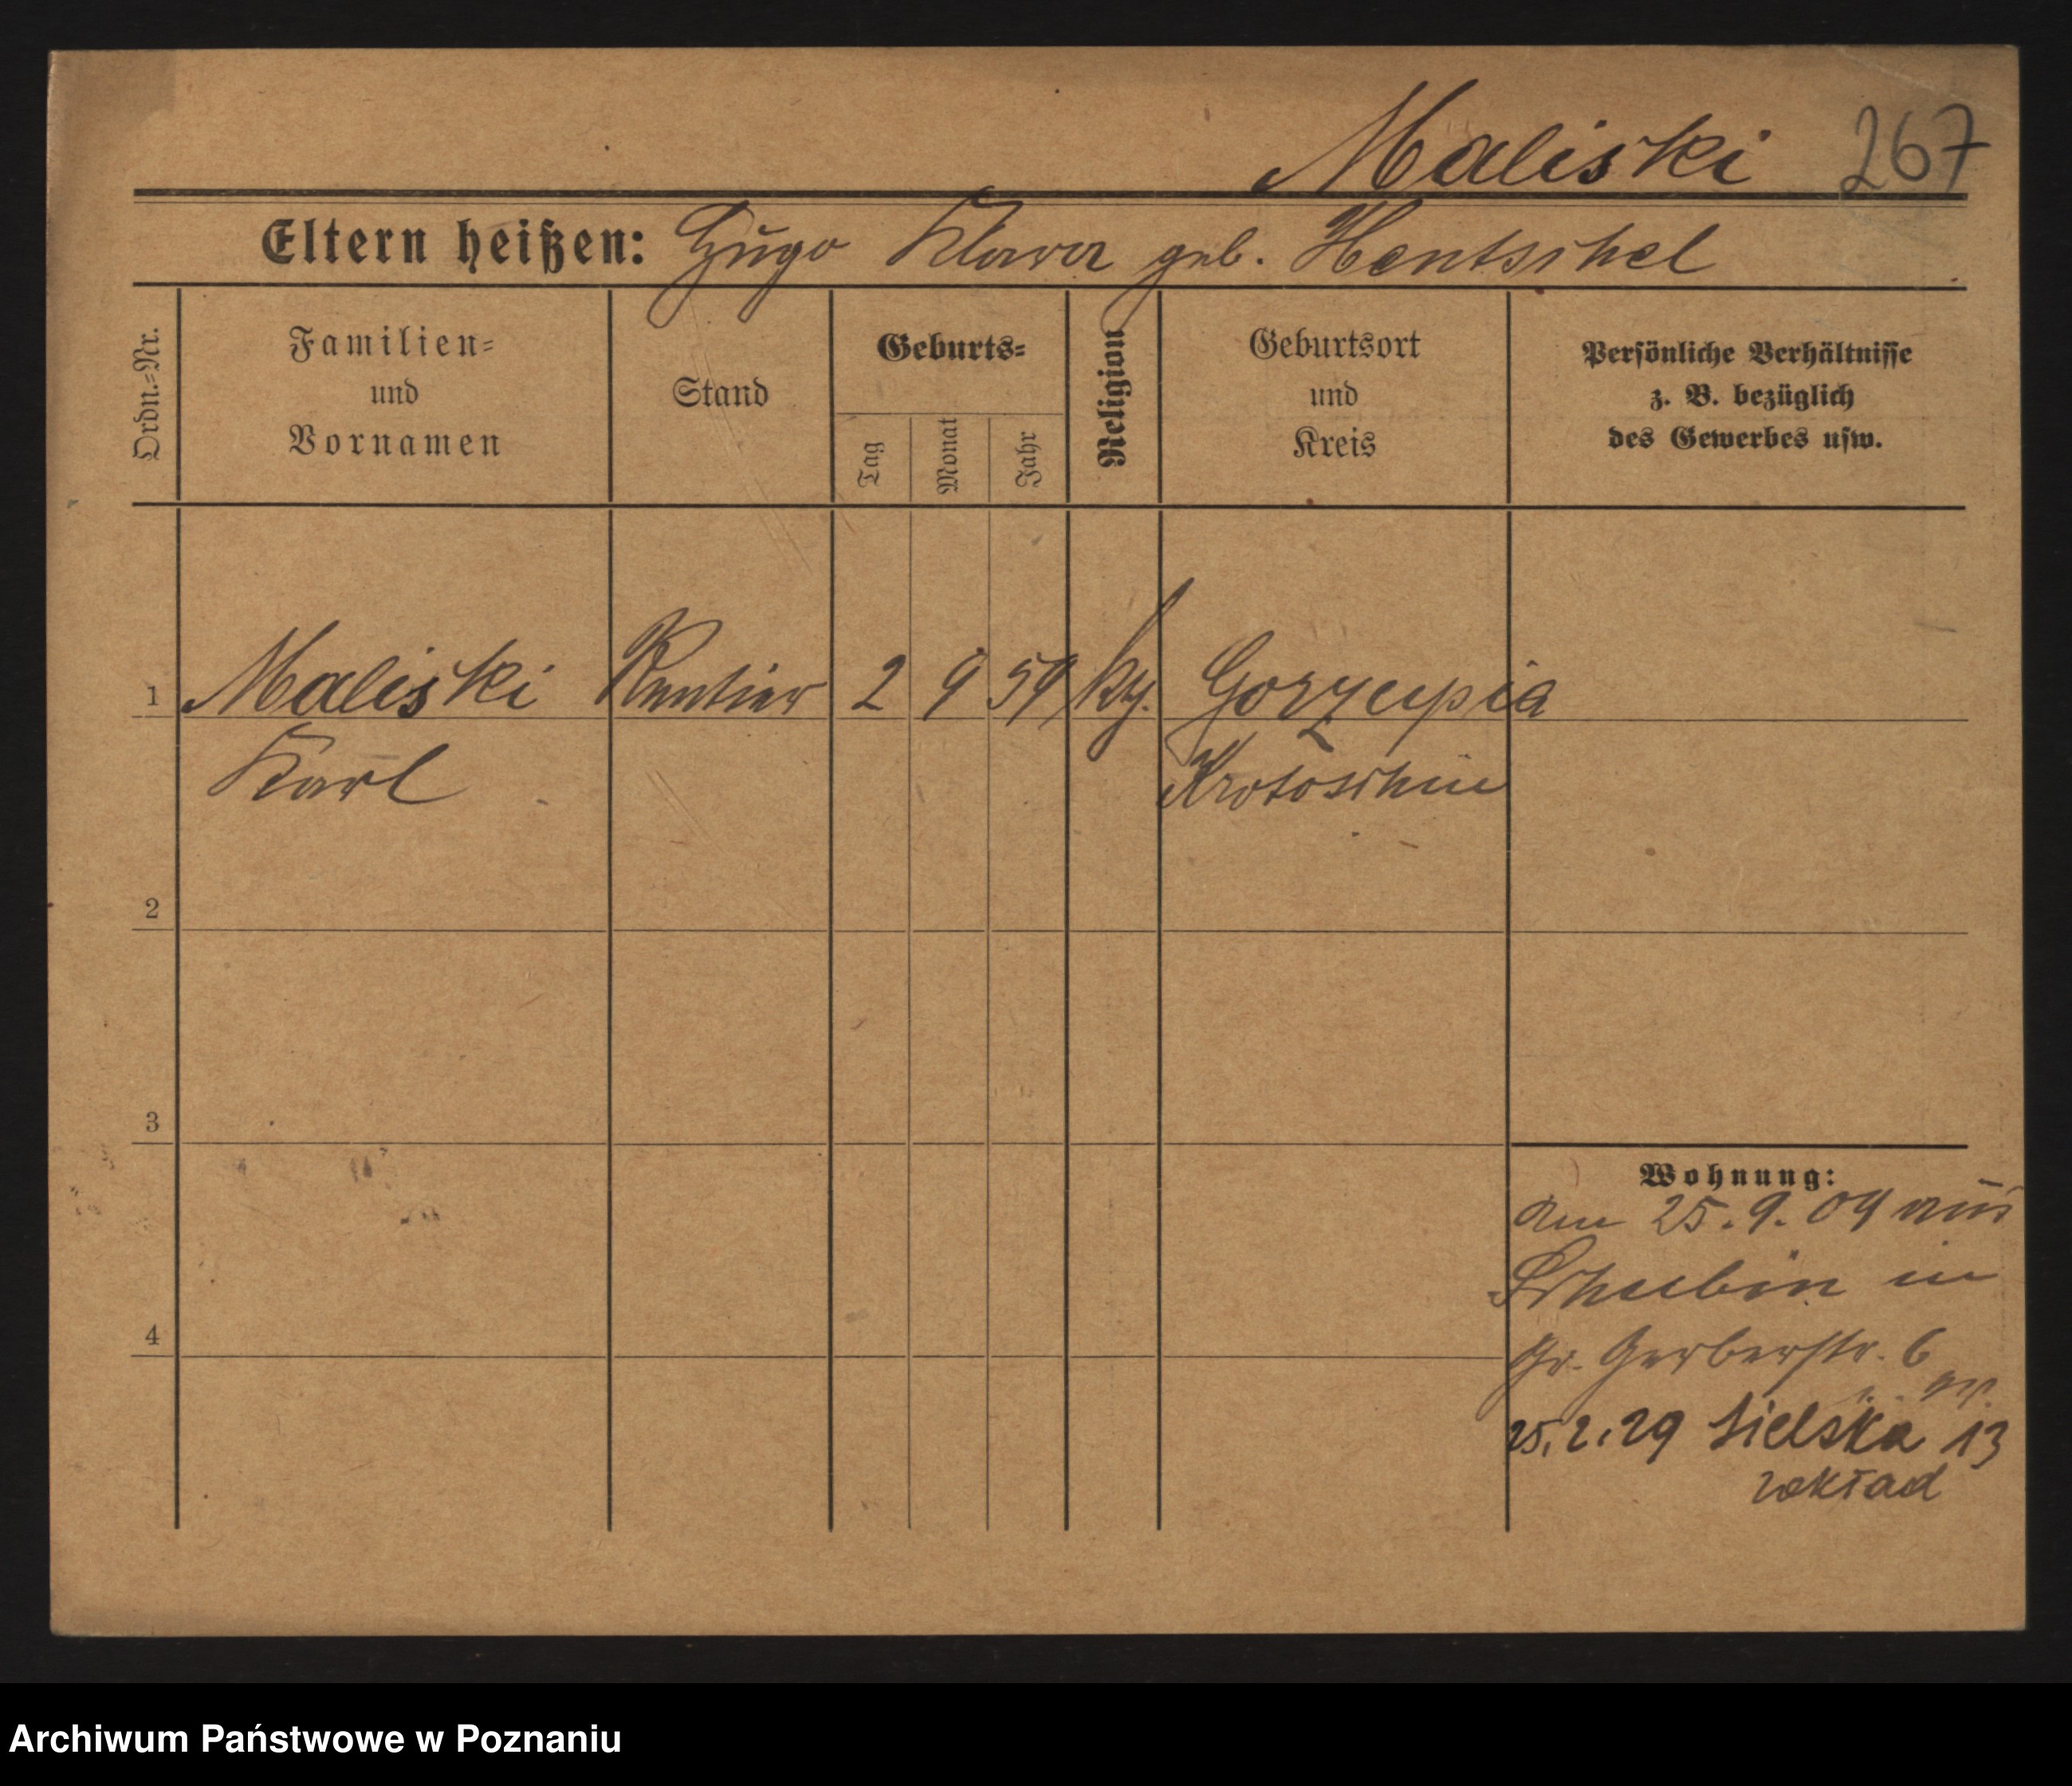 Maliski 267
Eltern heißen: Hugo Klara geb. Hentschel
Ordn.=Nr.
Familien=
und
Vornamen
Stand
Geburts=
Tag
Monat
Jahr
Religion
Geburtsort
und
Kreis
Persönliche Verhältnisse
z. B. bezüglich
des Gewerbes usw.
1 Maliski Rentier 2 9 59 Gorzupia
Karl Krotoschin
2
3
4
Wohnung:
Am 25.9.09 aus
Schubin in
Gr. Gerberstr. 6
25.2.29 Sielska 13
zakład
Archiwum Państwowe w Poznaniu